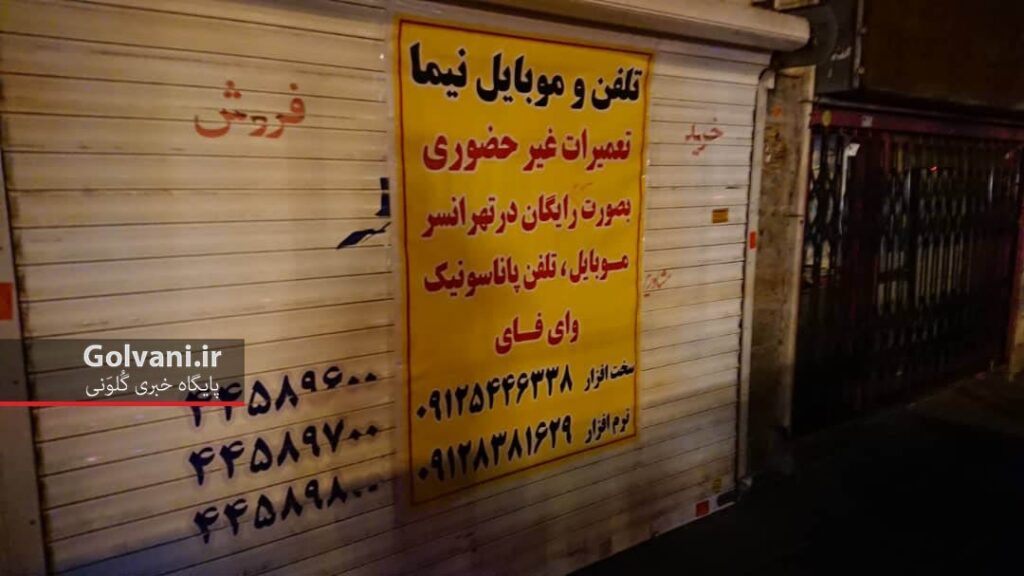 تلفن و موبایل نیما
تعمیرات غیر حضوری
بصورت رایگان در تهرانسر
موبایل ، تلفن پاناسونیک
وای فای
سخت افزار ۰۹۱۲۵۴۴۶۳۳۸
نرم افزار ۰۹۱۲۸۳۸۱۶۲۹
خرید
فروش
۴۴۵۸۹۶۰۰
۴۴۵۸۹۷۰۰
۴۴۵۸۹۸۰۰
Golvani.ir
پایگاه خبری گُلوَنی